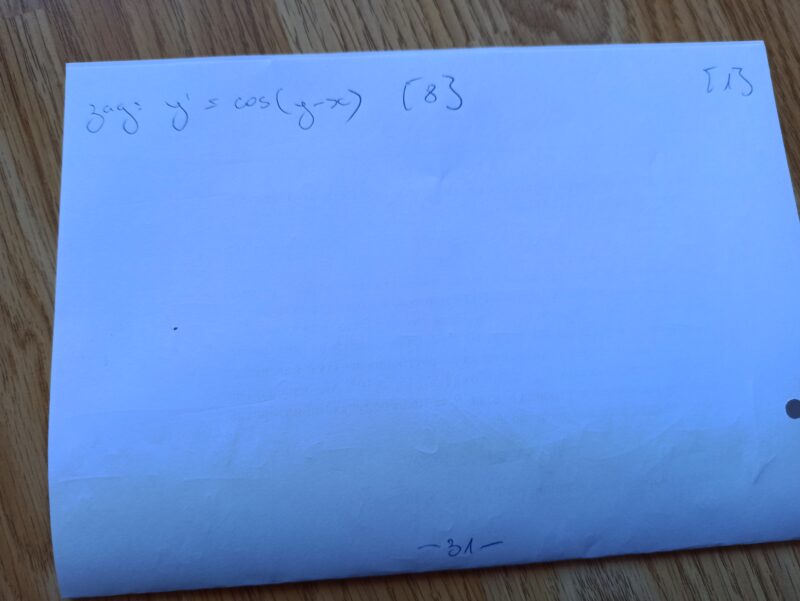 zag: y' = cos(y-x) [8] [1]
-31-